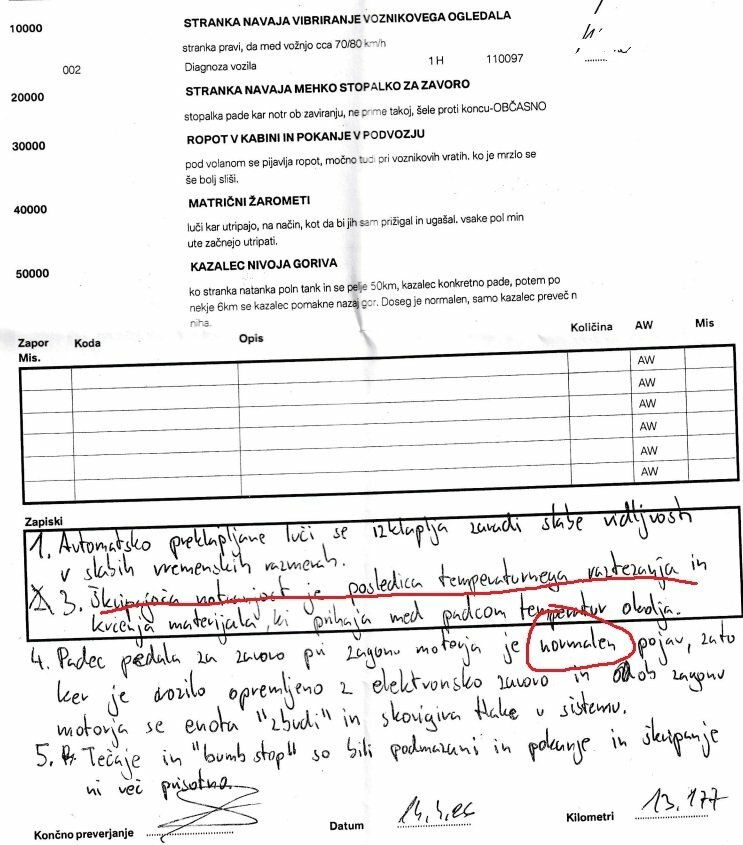 10000 STRANKA NAVAJA VIBRIRANJE VOZNIKOVEGA OGLEDALA
stranka pravi, da med vožnjo cca 70/80 km/h
002 Diagnoza vozila 1 H 110097
20000 STRANKA NAVAJA MEHKO STOPALKO ZA ZAVORO
stopalka pade kar notr ob zaviranju, ne prime takoj, šele proti koncu-OBČASNO
30000 ROPOT V KABINI IN POKANJE V PODVOZJU
pod volanom se pijavlja ropot, močno tudi pri voznikovih vratih. ko je mrzlo se
še bolj sliši.
40000 MATRIČNI ŽAROMETI
luči kar utripajo, na način, kot da bi jih sam prižigal in ugašal. vsake pol min
ute začnejo utripati.
50000 KAZALEC NIVOJA GORIVA
ko stranka natanka poln tank in se pelje 50km, kazalec konkretno pade, potem po
nekje 6km se kazalec pomakne nazaj gor. Doseg je normalen, samo kazalec preveč n
niha.
Zapor Mis. Koda Opis Količina AW Mis
AW
AW
AW
AW
AW
AW
Zapiski
1. Avtomatsko preklapljane luči se izklaplja zaradi slabe vidljivosti
v slabih vremenskih razmerah.
3. Škripajoča notranjost je posledica temperaturnega raztezanja in
krčenja materijala, ki prihaja med padcom temperatur okolja.
4. Padec pedala za zavoro pri zagonu motorja je normalen pojav, zato
ker je vozilo opremljeno z elektronsko zavoro in ob zagonu
motorja se enota "zbudi" in skorigira tlake v sistemu.
5. Tečaje in "bumb stop" so bili podmazani in pokanje in škripanje
ni več prisotno.
Končno preverjanje Datum Kilometri 13.177